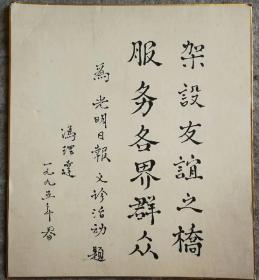 架設友誼之橋
服务各界群众
為光明日報义诊活动題
馮理達
一九九五年春